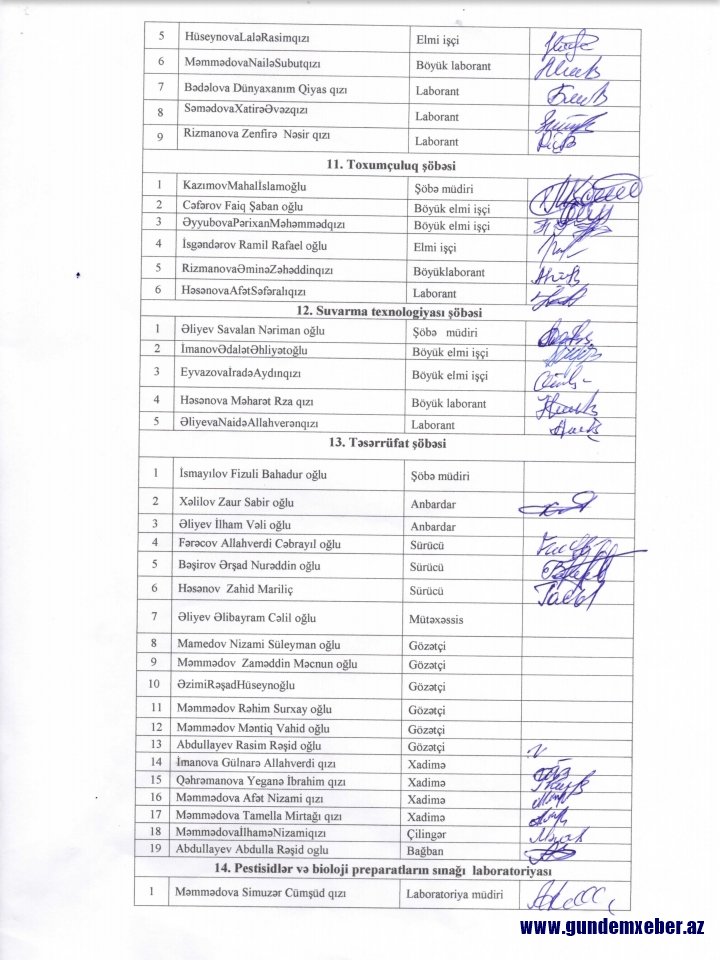 5 HüseynovaLaləRasimqızı Elmi işçi
6 MəmmədovaNailəSubutqızı Böyük laborant
7 Bədəlova Dünyaxanım Qiyas qızı Laborant
8 SəmədovaXatirəƏvəzqızı Laborant
9 Rizmanova Zenfirə Nəsir qızı Laborant
11. Toxumçuluq şöbəsi
1 KazımovMahalİslamoğlu Şöbə müdiri
2 Cəfərov Faiq Şaban oğlu Böyük elmi işçi
3 ƏyyubovaPərixanMəhəmmədqızı Böyük elmi işçi
4 İsgəndərov Ramil Rafael oğlu Elmi işçi
5 RizmanovaƏminəZəhəddinqızı Böyüklaborant
6 HəsənovaAfətSəfəralıqızı Laborant
12. Suvarma texnologiyası şöbəsi
1 Əliyev Savalan Nəriman oğlu Şöbə müdiri
2 İmanovƏdalətƏhliyətoğlu Böyük elmi işçi
3 EyvazovaİradəAydınqızı Böyük elmi işçi
4 Həsənova Məharət Rza qızı Böyük laborant
5 ƏliyevaNaidəAllahverənqızı Laborant
13. Təsərrüfat şöbəsi
1 İsmayılov Fizuli Bahadur oğlu Şöbə müdiri
2 Xəlilov Zaur Sabir oğlu Anbardar
3 Əliyev İlham Vəli oğlu Anbardar
4 Fərəcov Allahverdi Cəbrayıl oğlu Sürücü
5 Bəşirov Ərşad Nurəddin oğlu Sürücü
6 Həsənov Zahid Mariliç Sürücü
7 Əliyev Əlibayram Cəlil oğlu Mütəxəssis
8 Mamedov Nizami Süleyman oğlu Gözətçi
9 Məmmədov Zaməddin Məcnun oğlu Gözətçi
10 ƏzimiRəşadHüseynoğlu Gözətçi
11 Məmmədov Rəhim Surxay oğlu Gözətçi
12 Məmmədov Məntiq Vahid oğlu Gözətçi
13 Abdullayev Rasim Rəşid oğlu Gözətçi
14 İmanova Gülnarə Allahverdi qızı Xadimə
15 Qəhrəmanova Yeganə İbrahim qızı Xadimə
16 Məmmədova Afət Nizami qızı Xadimə
17 Məmmədova Tamella Mirtağı qızı Xadimə
18 MəmmədovaİlhaməNizamiqızı Çilingər
19 Abdullayev Abdulla Rəşid oglu Bağban
14. Pestisidlər və bioloji preparatların sınağı laboratoriyası
1 Məmmədova Simuzər Cümşüd qızı Laboratoriya müdiri
www.gundemxeber.az